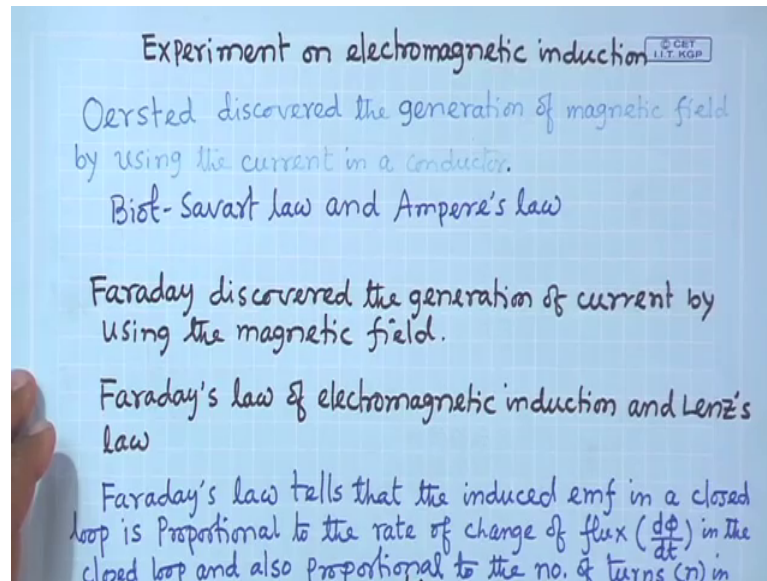 Experiment on electromagnetic induction
© CET
I.I.T. KGP
Oersted discovered the generation of magnetic field
by using the current in a conductor.
Biot-Savart law and Ampere's law
Faraday discovered the generation of current by
using the magnetic field.
Faraday's law of electromagnetic induction and Lenz's
law
Faraday's law tells that the induced emf in a closed
loop is Proportional to the rate of change of flux (dφ/dt) in the
closed loop and also proportional to the no. of turns (n) in